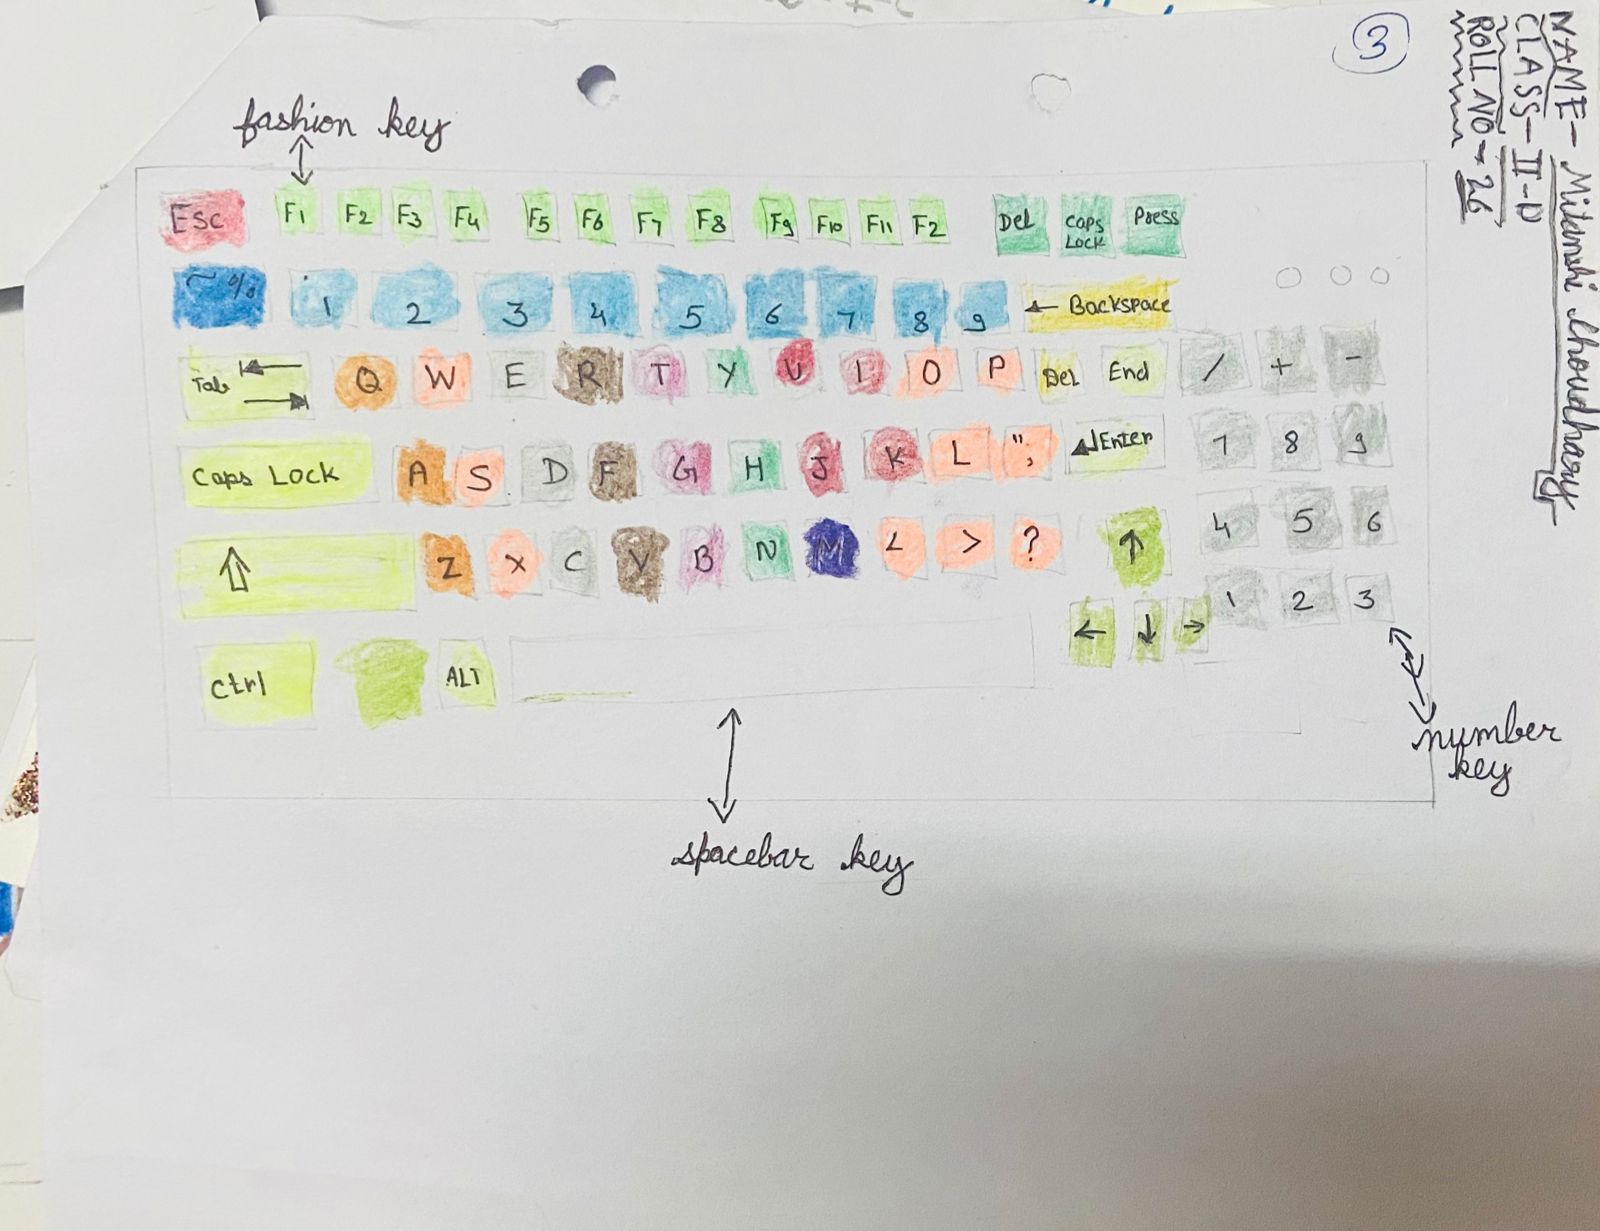 3
NAME- Mitanshi Choudhary
CLASS- II-D
ROLL NO- 26
fashion key
Esc F1 F2 F3 F4 F5 F6 F7 F8 F9 F10 F11 F2 Del Caps Lock Press
~ % 1 2 3 4 5 6 7 8 9 ← Backspace
Tab Q W E R T Y U I O P Del End / + -
Caps Lock A S D F G H J K L " ; Enter 7 8 9
⇧ Z X C V B N M < > ? ↑ 4 5 6
← ↓ → 1 2 3
Ctrl ALT
number
key
spacebar key